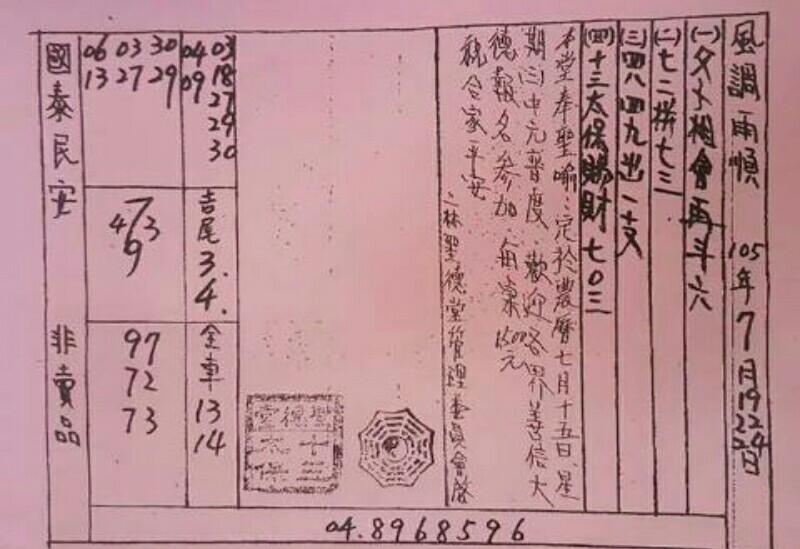 風調雨順 105年7月19 22 24日
(一)夕卜相會再斗六
(二)七二拼七三
(三)四八四九出一支
(四)十三太保賜財七0三
本堂奉聖喻:定於農曆七月十五日、星
期(三)中元普度、歡迎各界善信大
德報名參加、每桌1500元
祝合家平安
二林聖德堂管理委員會啓
聖德堂
十三太保
04 03
09 18
27
29
30
06 03 30
13 27 29
吉尾
3.
4.
7
4 3
9
全車
13
14
97
72
73
國泰民安 非賣品
04.8968596